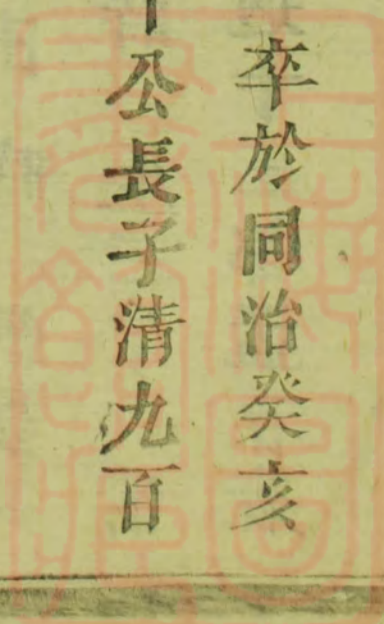 卒於同治癸亥
公長子清九百